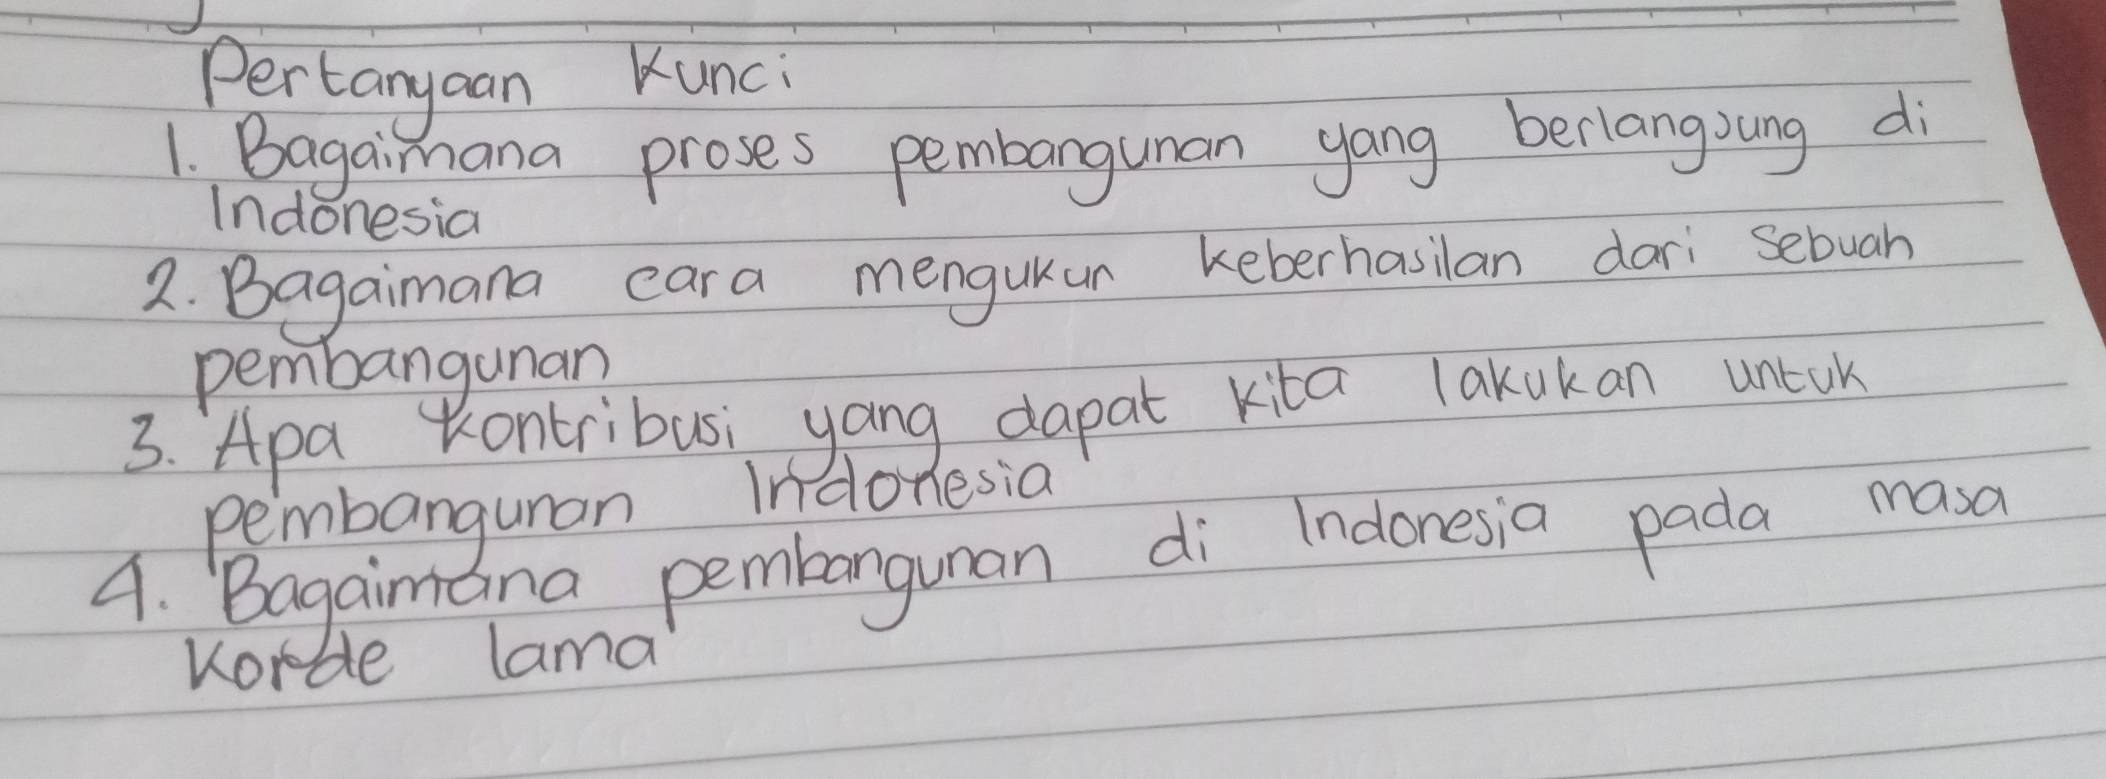 Pertanyaan Kunci
1. Bagaimana proses pembangunan yang berlangsung di
Indonesia
2. Bagaimana cara mengukur keberhasilan dari sebuah
pembangunan
3. Apa kontribusi yang dapat kita lakukan untuk
pembangunan Indonesia
4. Bagaimana pembangunan di Indonesia pada masa
lama